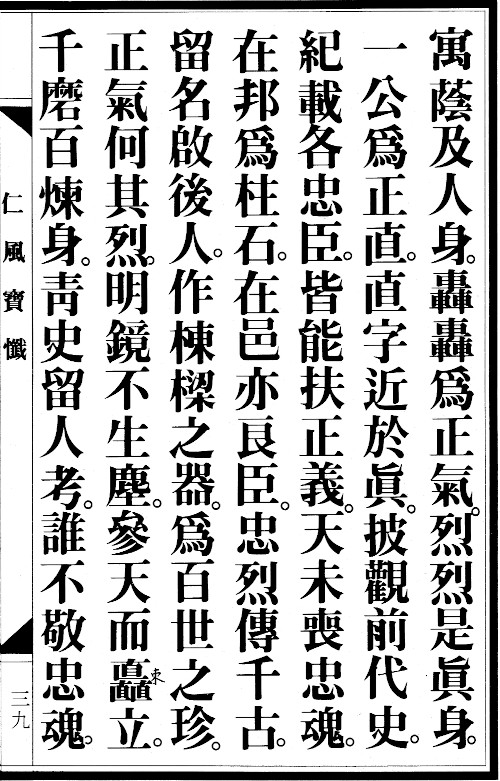 寓蔭及人身。轟轟爲正氣。烈烈是眞身。
一公爲正直。直字近於眞。披觀前代史。
紀載各忠臣。皆能扶正義。天未喪忠魂。
在邦爲柱石。在邑亦良臣。忠烈傳千古。
留名啟後人。作棟樑之器。爲百世之珍。
正氣何其烈。明鏡不生塵。參天而矗立。
千磨百煉身。靑史留人考。誰不敬忠魂。
仁風寶懺
三九